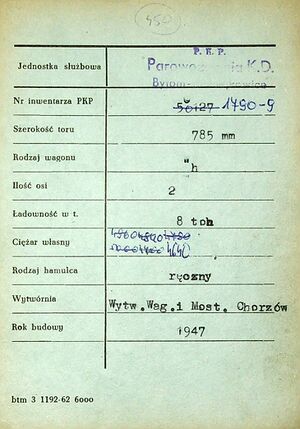 450
P. K. P.
Jednostka służbowa Parowozownia K.D.
Bytom-
Nr inwentarza PKP 50127 1790-9
Szerokość toru 785 mm
Rodzaj wagonu "h
Ilość osi 2
Ładowność w t. 8 ton
Ciężar własny
Rodzaj hamulca ręczny
Wytwórnia Wytw.Wag.i Most. Chorzów
Rok budowy 1947
btm 3 1192-62 6000